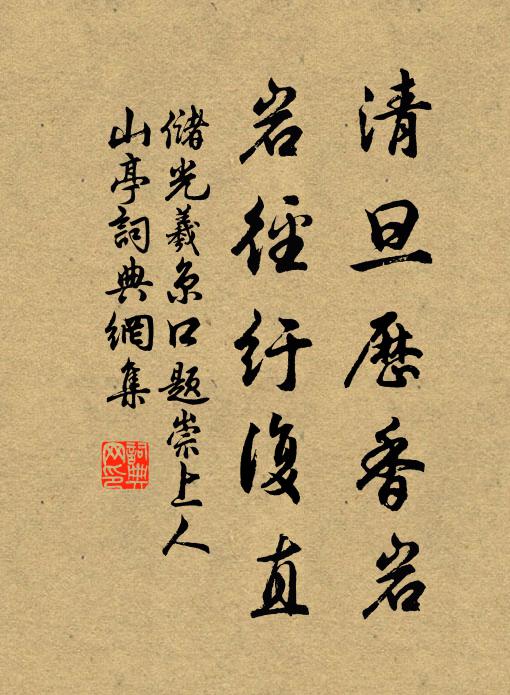 清旦歷香岩
岩徑紆復直
儲光羲京口題崇上人
山亭詞典網集
詞典網印